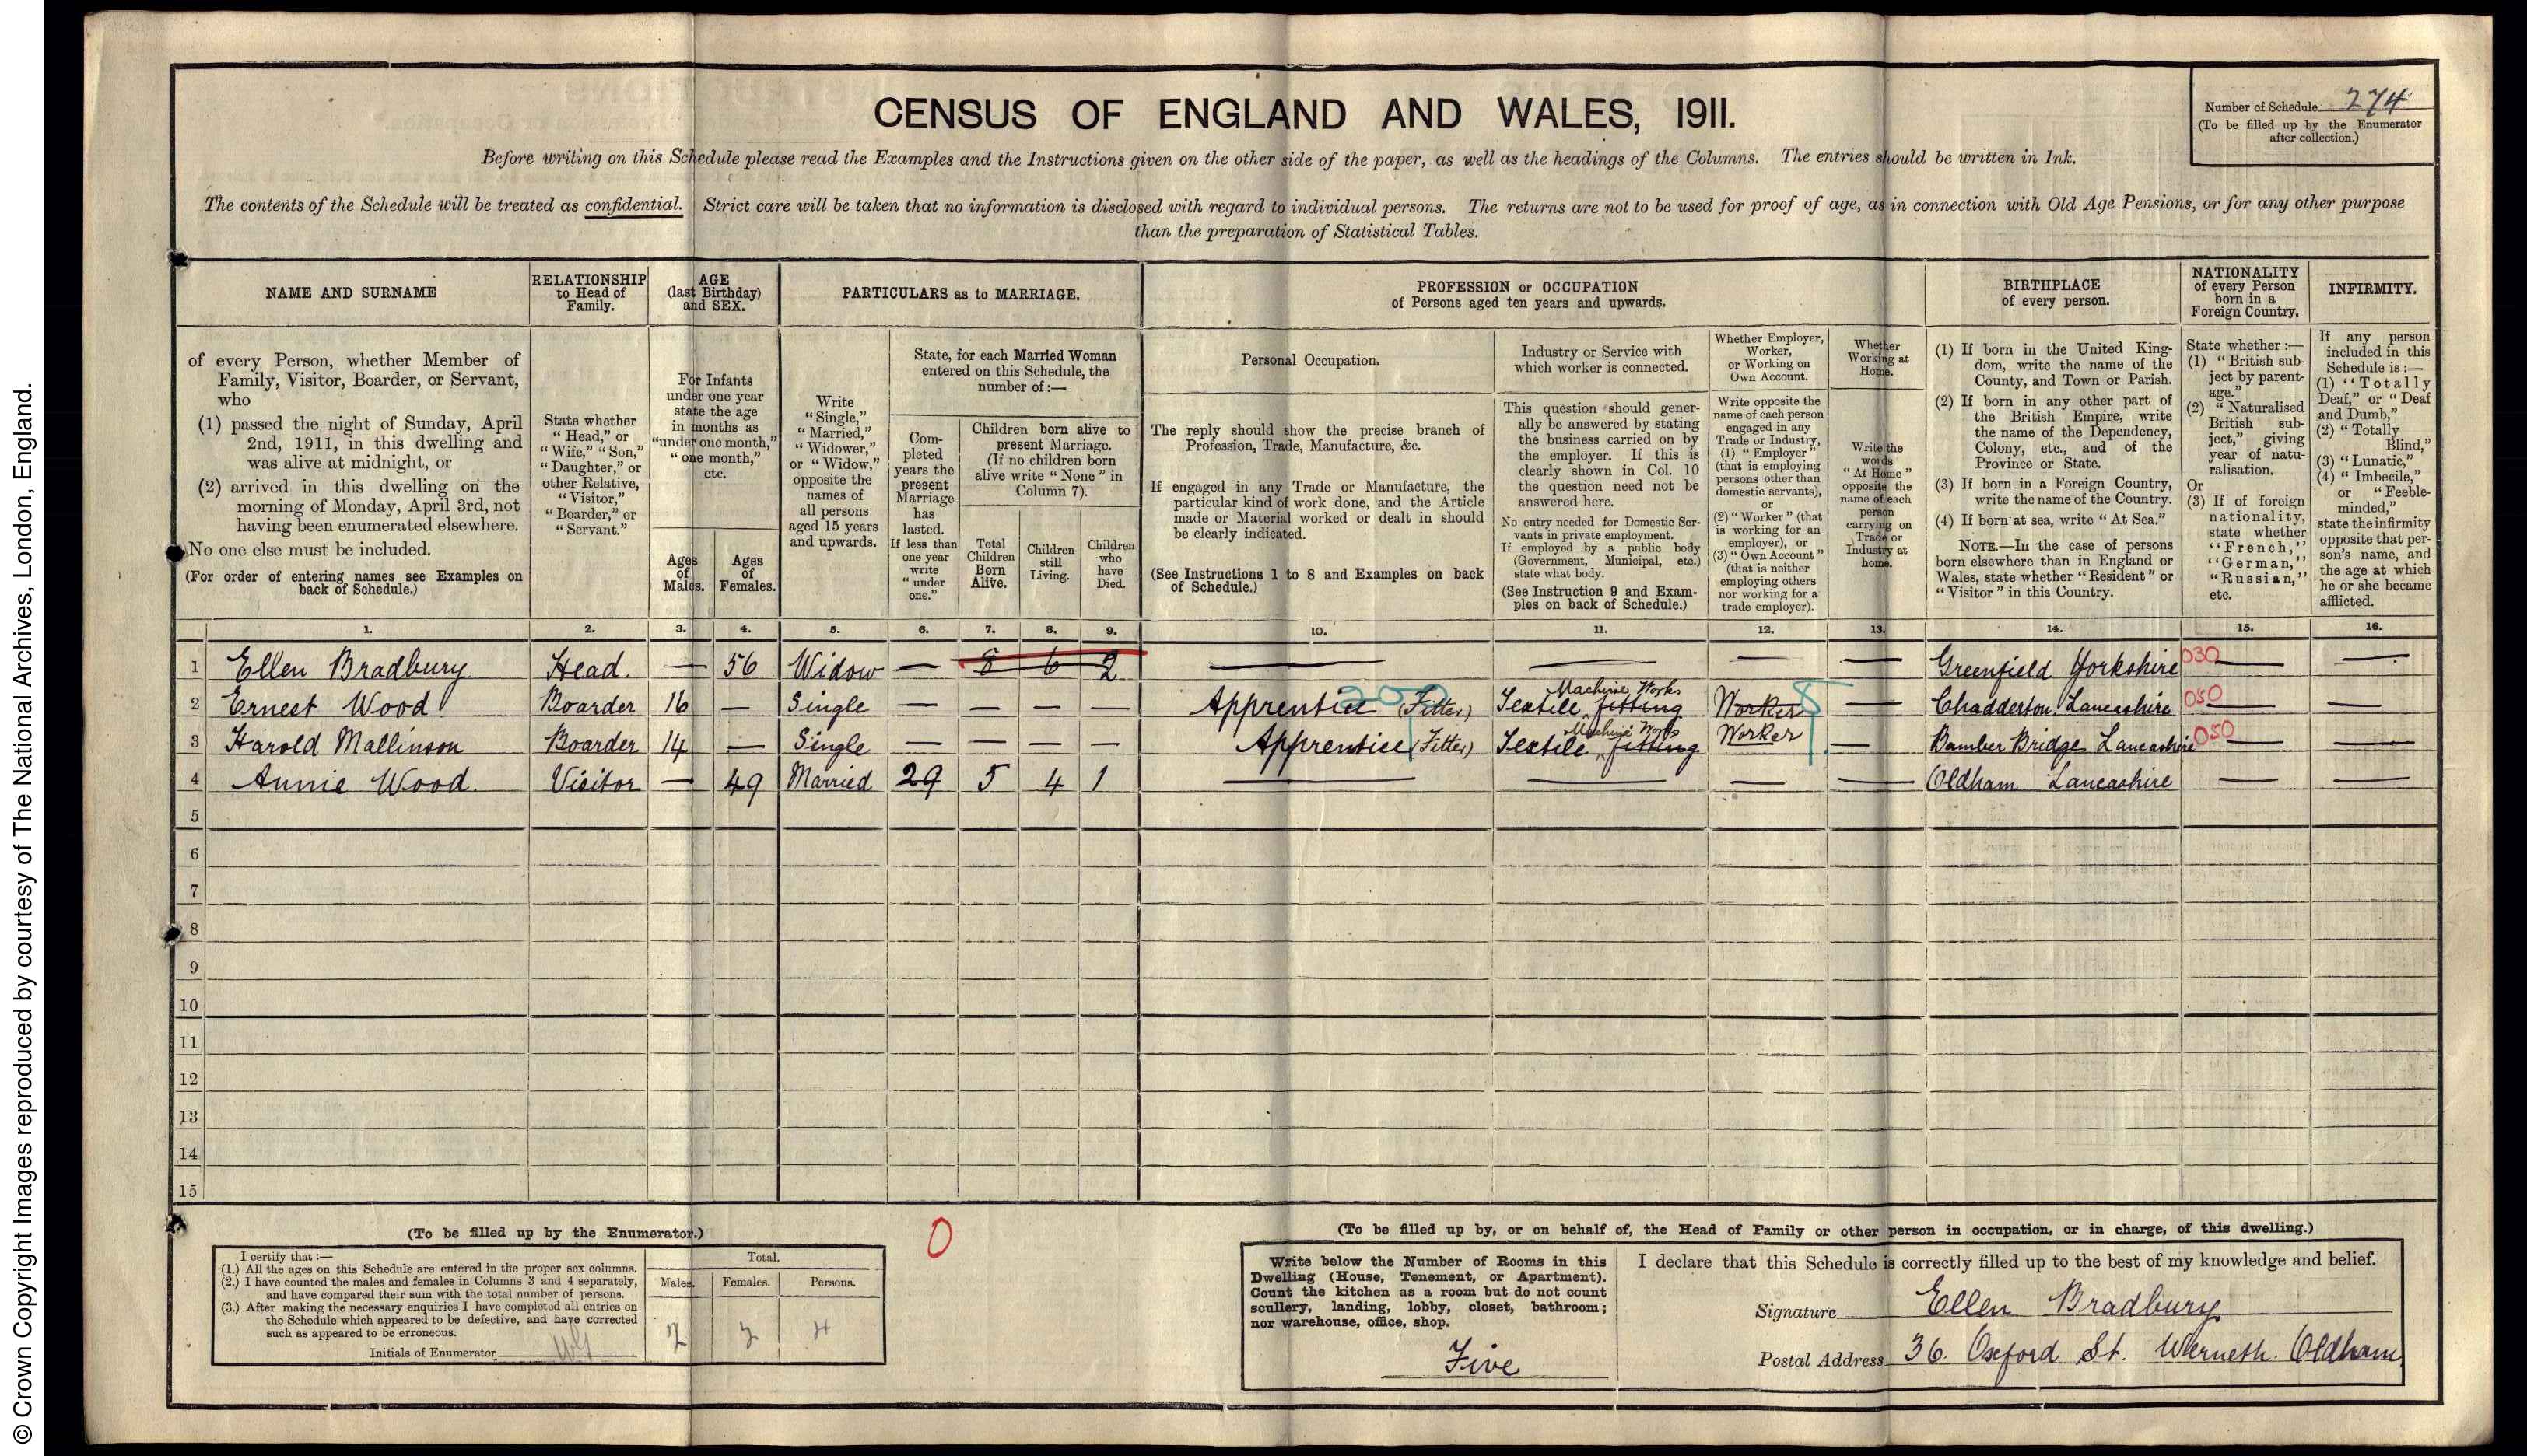 © Crown Copyright Images reproduced by courtesy of The National Archives, London, England.
CENSUS OF ENGLAND AND WALES, 1911.
Number of Schedule 274
(To be filled up by the Enumerator
after collection.)
Before writing on this Schedule please read the Examples and the Instructions given on the other side of the paper, as well as the headings of the Columns. The entries should be written in Ink.
The contents of the Schedule will be treated as confidential. Strict care will be taken that no information is disclosed with regard to individual persons. The returns are not to be used for proof of age, as in connection with Old Age Pensions, or for any other purpose
than the preparation of Statistical Tables.
NAME AND SURNAME
of every Person, whether Member of
Family, Visitor, Boarder, or Servant,
who
(1) passed the night of Sunday, April
2nd, 1911, in this dwelling and
was alive at midnight, or
(2) arrived in this dwelling on the
morning of Monday, April 3rd, not
having been enumerated elsewhere.
No one else must be included.
(For order of entering names see Examples on
back of Schedule.)
RELATIONSHIP
to Head of
Family.
State whether
"Head," or
"Wife," "Son,"
"Daughter," or
other Relative,
"Visitor,"
"Boarder," or
"Servant."
AGE
(last Birthday)
and SEX.
For Infants
under one year
state the age
in months as
"under one month,"
"one month,"
etc.
Ages
of
Males.
Ages
of
Females.
PARTICULARS as to MARRIAGE.
Write
"Single,"
"Married,"
"Widower,"
or "Widow,"
opposite the
names of
all persons
aged 15 years
and upwards.
State, for each Married Woman
entered on this Schedule, the
number of:—
Com-
pleted
years the
present
Marriage
has
lasted.
If less than
one year
write
"under
one."
Children born alive to
present Marriage.
(If no children born
alive write "None" in
Column 7).
Total
Children
Born
Alive.
Children
still
Living.
Children
who
have
Died.
PROFESSION or OCCUPATION
of Persons aged ten years and upwards.
Personal Occupation.
The reply should show the precise branch of
Profession, Trade, Manufacture, &c.
If engaged in any Trade or Manufacture, the
particular kind of work done, and the Article
made or Material worked or dealt in should
be clearly indicated.
(See Instructions 1 to 8 and Examples on back
of Schedule.)
Industry or Service with
which worker is connected.
This question should gener-
ally be answered by stating
the business carried on by
the employer. If this is
clearly shown in Col. 10
the question need not be
answered here.
No entry needed for Domestic Ser-
vants in private employment.
If employed by a public body
(Government, Municipal, etc.)
state what body.
(See Instruction 9 and Exam-
ples on back of Schedule.)
Whether Employer,
Worker,
or Working on
Own Account.
Write opposite the
name of each person
engaged in any
Trade or Industry,
(1) "Employer"
(that is employing
persons other than
domestic servants),
or
(2) "Worker" (that
is working for an
employer), or
(3) "Own Account"
(that is neither
employing others
nor working for a
trade employer).
Whether
Working at
Home.
Write the
words
"At Home"
opposite the
name of each
person
carrying on
Trade or
Industry at
home.
BIRTHPLACE
of every person.
(1) If born in the United King-
dom, write the name of the
County, and Town or Parish.
(2) If born in any other part of
the British Empire, write
the name of the Dependency,
Colony, etc., and of the
Province or State.
(3) If born in a Foreign Country,
write the name of the Country.
(4) If born at sea, write "At Sea."
NOTE.—In the case of persons
born elsewhere than in England or
Wales, state whether "Resident" or
"Visitor" in this Country.
NATIONALITY
of every Person
born in a
Foreign Country.
State whether:—
(1) "British sub-
ject by parent-
age."
(2) "Naturalised
British sub-
ject," giving
year of natu-
ralisation.
Or
(3) If of foreign
nationality,
state whether
"French,"
"German,"
"Russian,"
etc.
INFIRMITY.
If any person
included in this
Schedule is:—
(1) "Totally
Deaf," or "Deaf
and Dumb,"
(2) "Totally
Blind,"
(3) "Lunatic,"
(4) "Imbecile,"
or "Feeble-
minded,"
state the infirmity
opposite that per-
son's name, and
the age at which
he or she became
afflicted.
1. 2. 3. 4. 5. 6. 7. 8. 9. 10. 11. 12. 13. 14. 15. 16.
1 Ellen Bradbury Head — 56 Widow — 8 6 2 — — — — Greenfield Yorkshire 030 — —
2 Ernest Wood Boarder 16 — Single — — — — Apprentice (Fitter) 200 Textile Machine Works fitting Worker 5 — Chadderton Lancashire 050 — —
3 Harold Mallinson Boarder 14 — Single — — — — Apprentice (Fitter) Textile Machine Works fitting Worker — Bamber Bridge Lancashire 050 — —
4 Annie Wood Visitor — 49 Married 29 5 4 1 — — — — Oldham Lancashire — —
5
6
7
8
9
10
11
12
13
14
15
(To be filled up by the Enumerator.)
I certify that:—
(1.) All the ages on this Schedule are entered in the proper sex columns.
(2.) I have counted the males and females in Columns 3 and 4 separately,
and have compared their sum with the total number of persons.
(3.) After making the necessary enquiries I have completed all entries on
the Schedule which appeared to be defective, and have corrected
such as appeared to be erroneous.
Initials of Enumerator
Total.
Males. Females. Persons.
2 2 4
0
(To be filled up by, or on behalf of, the Head of Family or other person in occupation, or in charge, of this dwelling.)
Write below the Number of Rooms in this
Dwelling (House, Tenement, or Apartment).
Count the kitchen as a room but do not count
scullery, landing, lobby, closet, bathroom;
nor warehouse, office, shop.
Five
I declare that this Schedule is correctly filled up to the best of my knowledge and belief.
Signature Ellen Bradbury
Postal Address 36. Oxford St. Werneth. Oldham